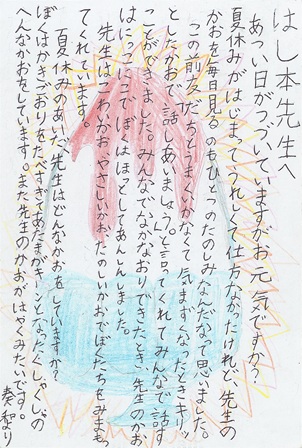 はし本先生へ
あつい日がつづいていますがお元気ですか?
夏休みがはじまってうれしくて仕方なかったけれど、先生の
かおを毎日見るのもひとつのたのしみなんだなって思いました。
この前友だちとうまくいかなくて気まずくなったとき、キリッ
としたかおで「話しあいましょう。」と言ってくれてみんなで話す
ことができました。みんなでなかなおりできたとき、先生のかお
はにっこにこでぼくはほっとしてあんしんしました。
先生はこわいかお、やさしいかお、たのしいかおでぼくたちをみまもっ
てくれています。
夏休みのあいだ、先生はどんなかおをしていますか?
ぼくはかきごおりをたべすぎてあたまがキーンとなったくしゃくしゃの
へんなかおをしています。また先生のかおがはやくみたいです。
奏和より